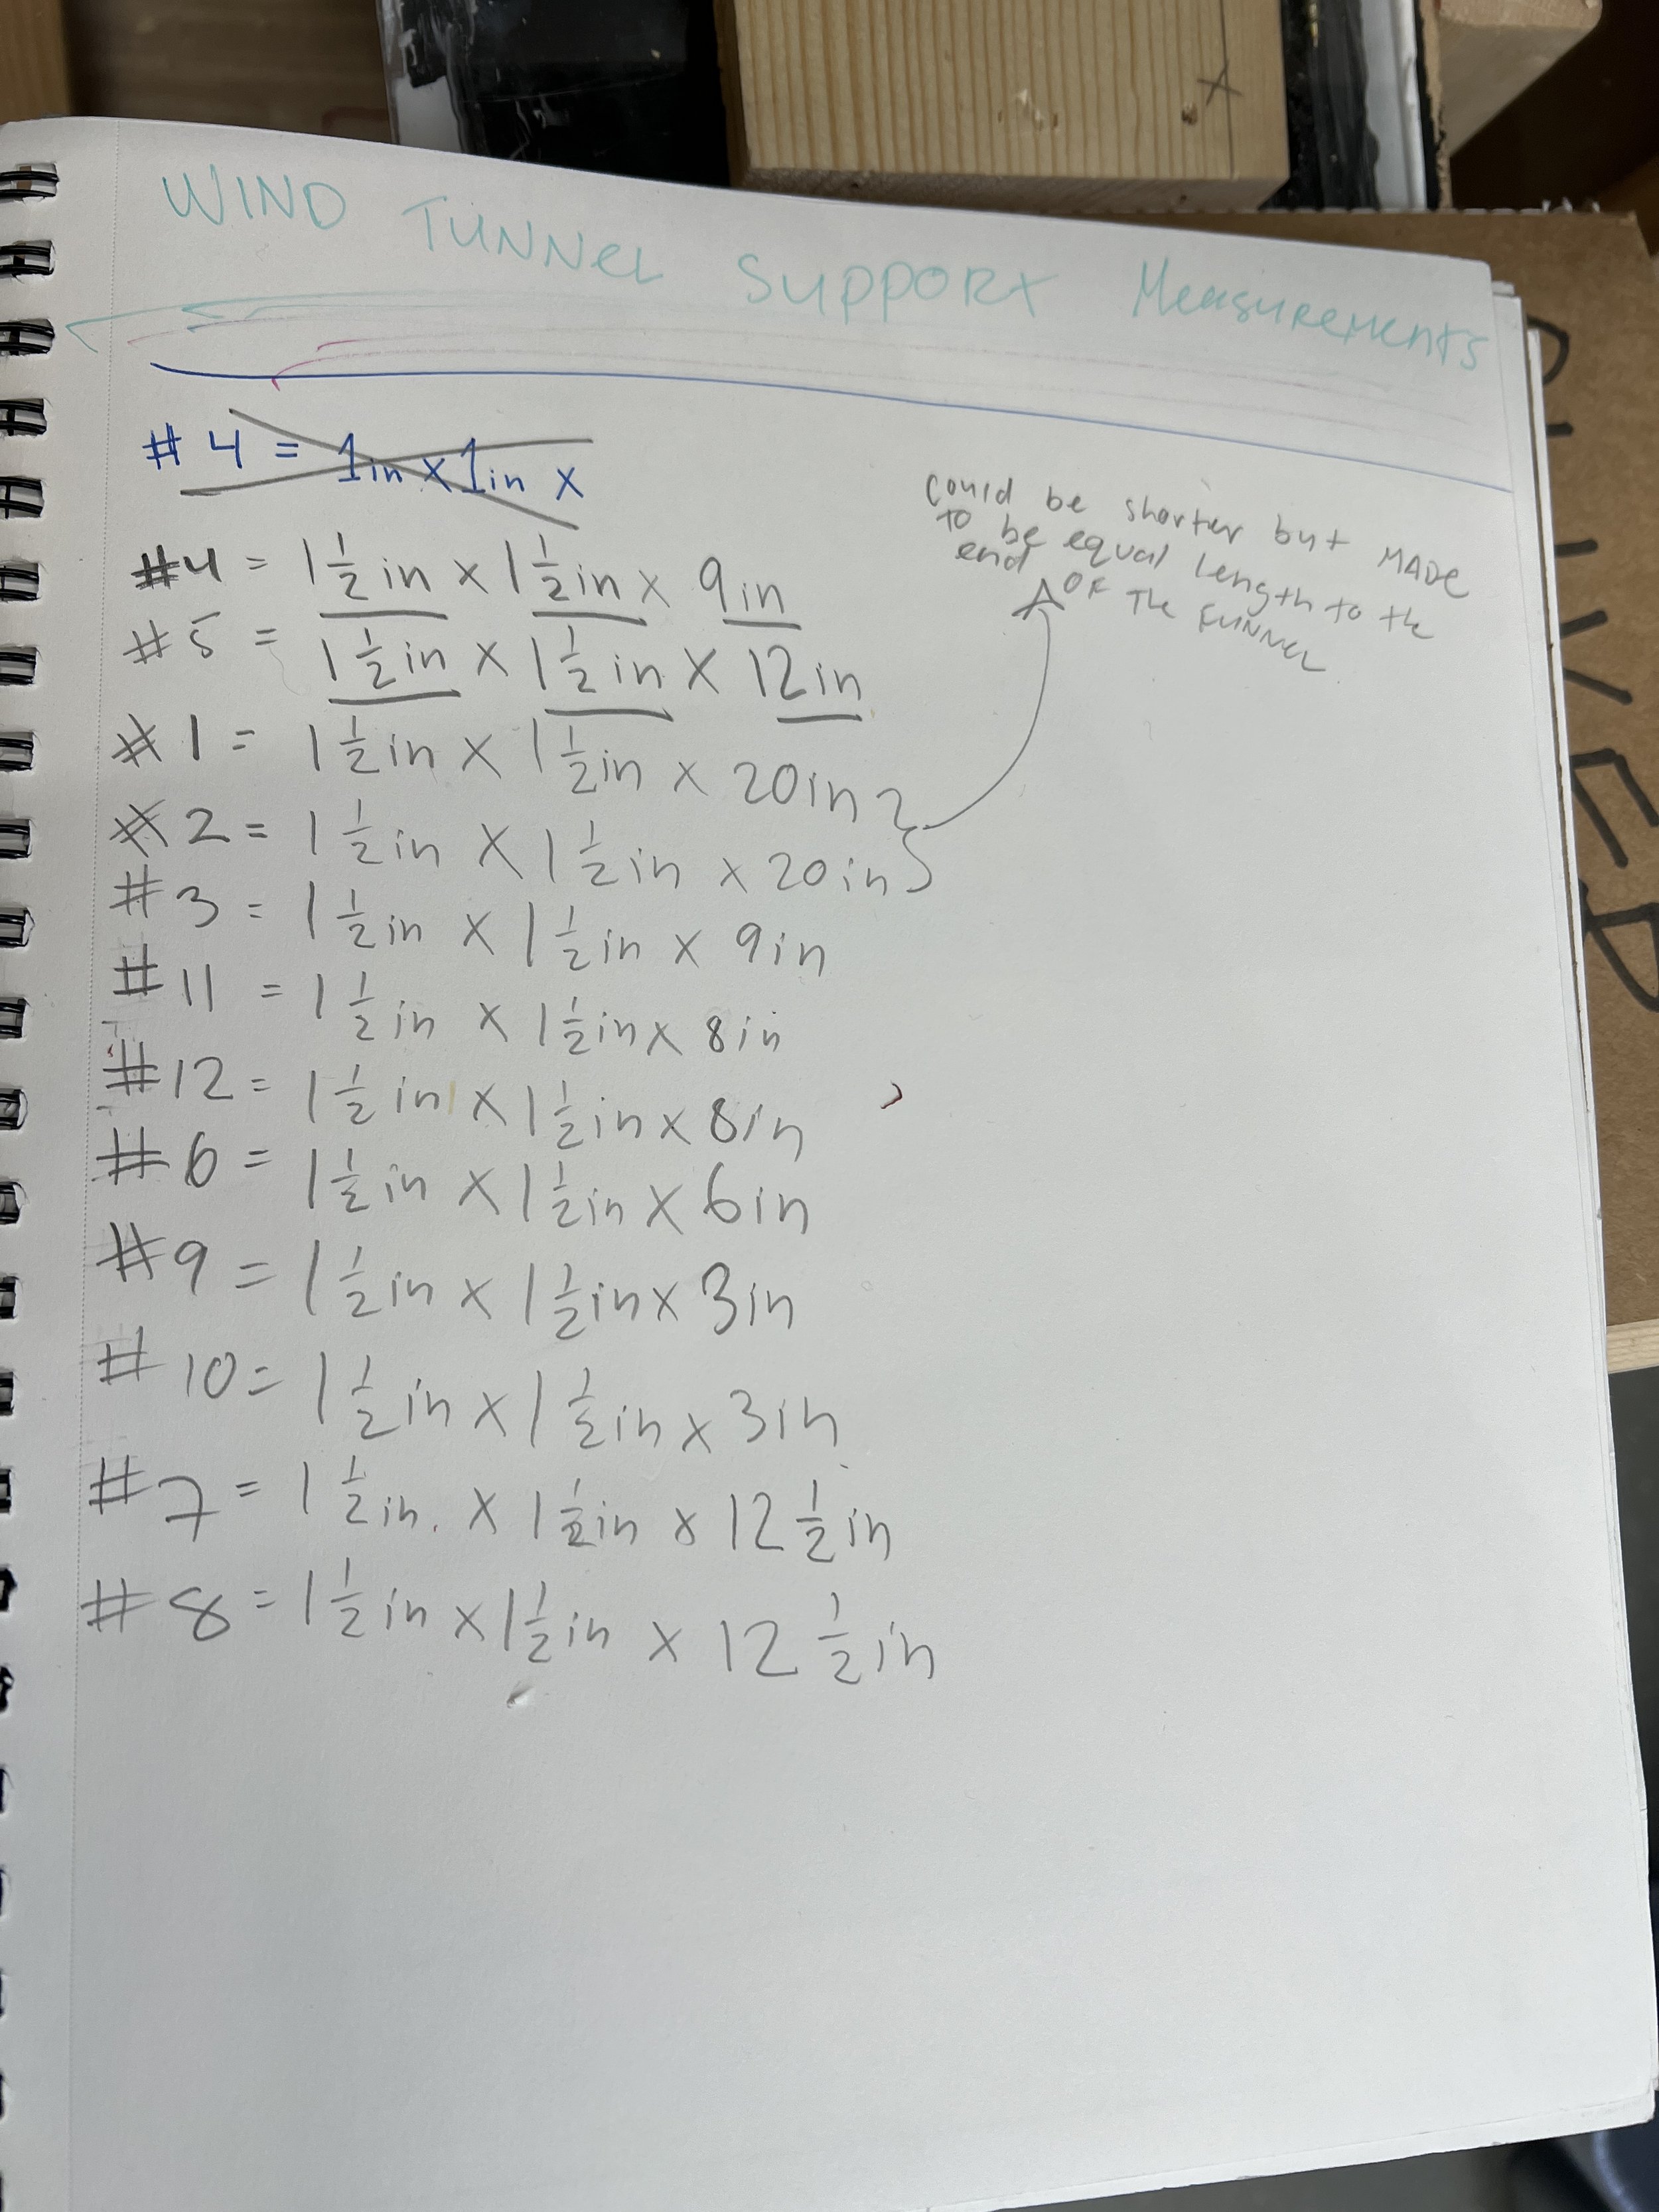 WIND TUNNEL SUPPORT Measurements
# 4 = 1in x 1in x
#4 = 1 1/2 in x 1 1/2 in x 9in
#5 = 1 1/2 in x 1 1/2 in x 12in
#1 = 1 1/2 in x 1 1/2 in x 20in
#2 = 1 1/2 in x 1 1/2 in x 20in
#3 = 1 1/2 in x 1 1/2 in x 9in
#11 = 1 1/2 in x 1 1/2 in x 8in
#12 = 1 1/2 in x 1 1/2 in x 8in
#6 = 1 1/2 in x 1 1/2 in x 6in
#9 = 1 1/2 in x 1 1/2 in x 3in
#10 = 1 1/2 in x 1 1/2 in x 3in
#7 = 1 1/2 in. x 1 1/2 in x 12 1/2 in
#8 = 1 1/2 in x 1 1/2 in x 12 1/2 in
could be shorter but MADE
to be equal length to the
end OF THE FUNNEL